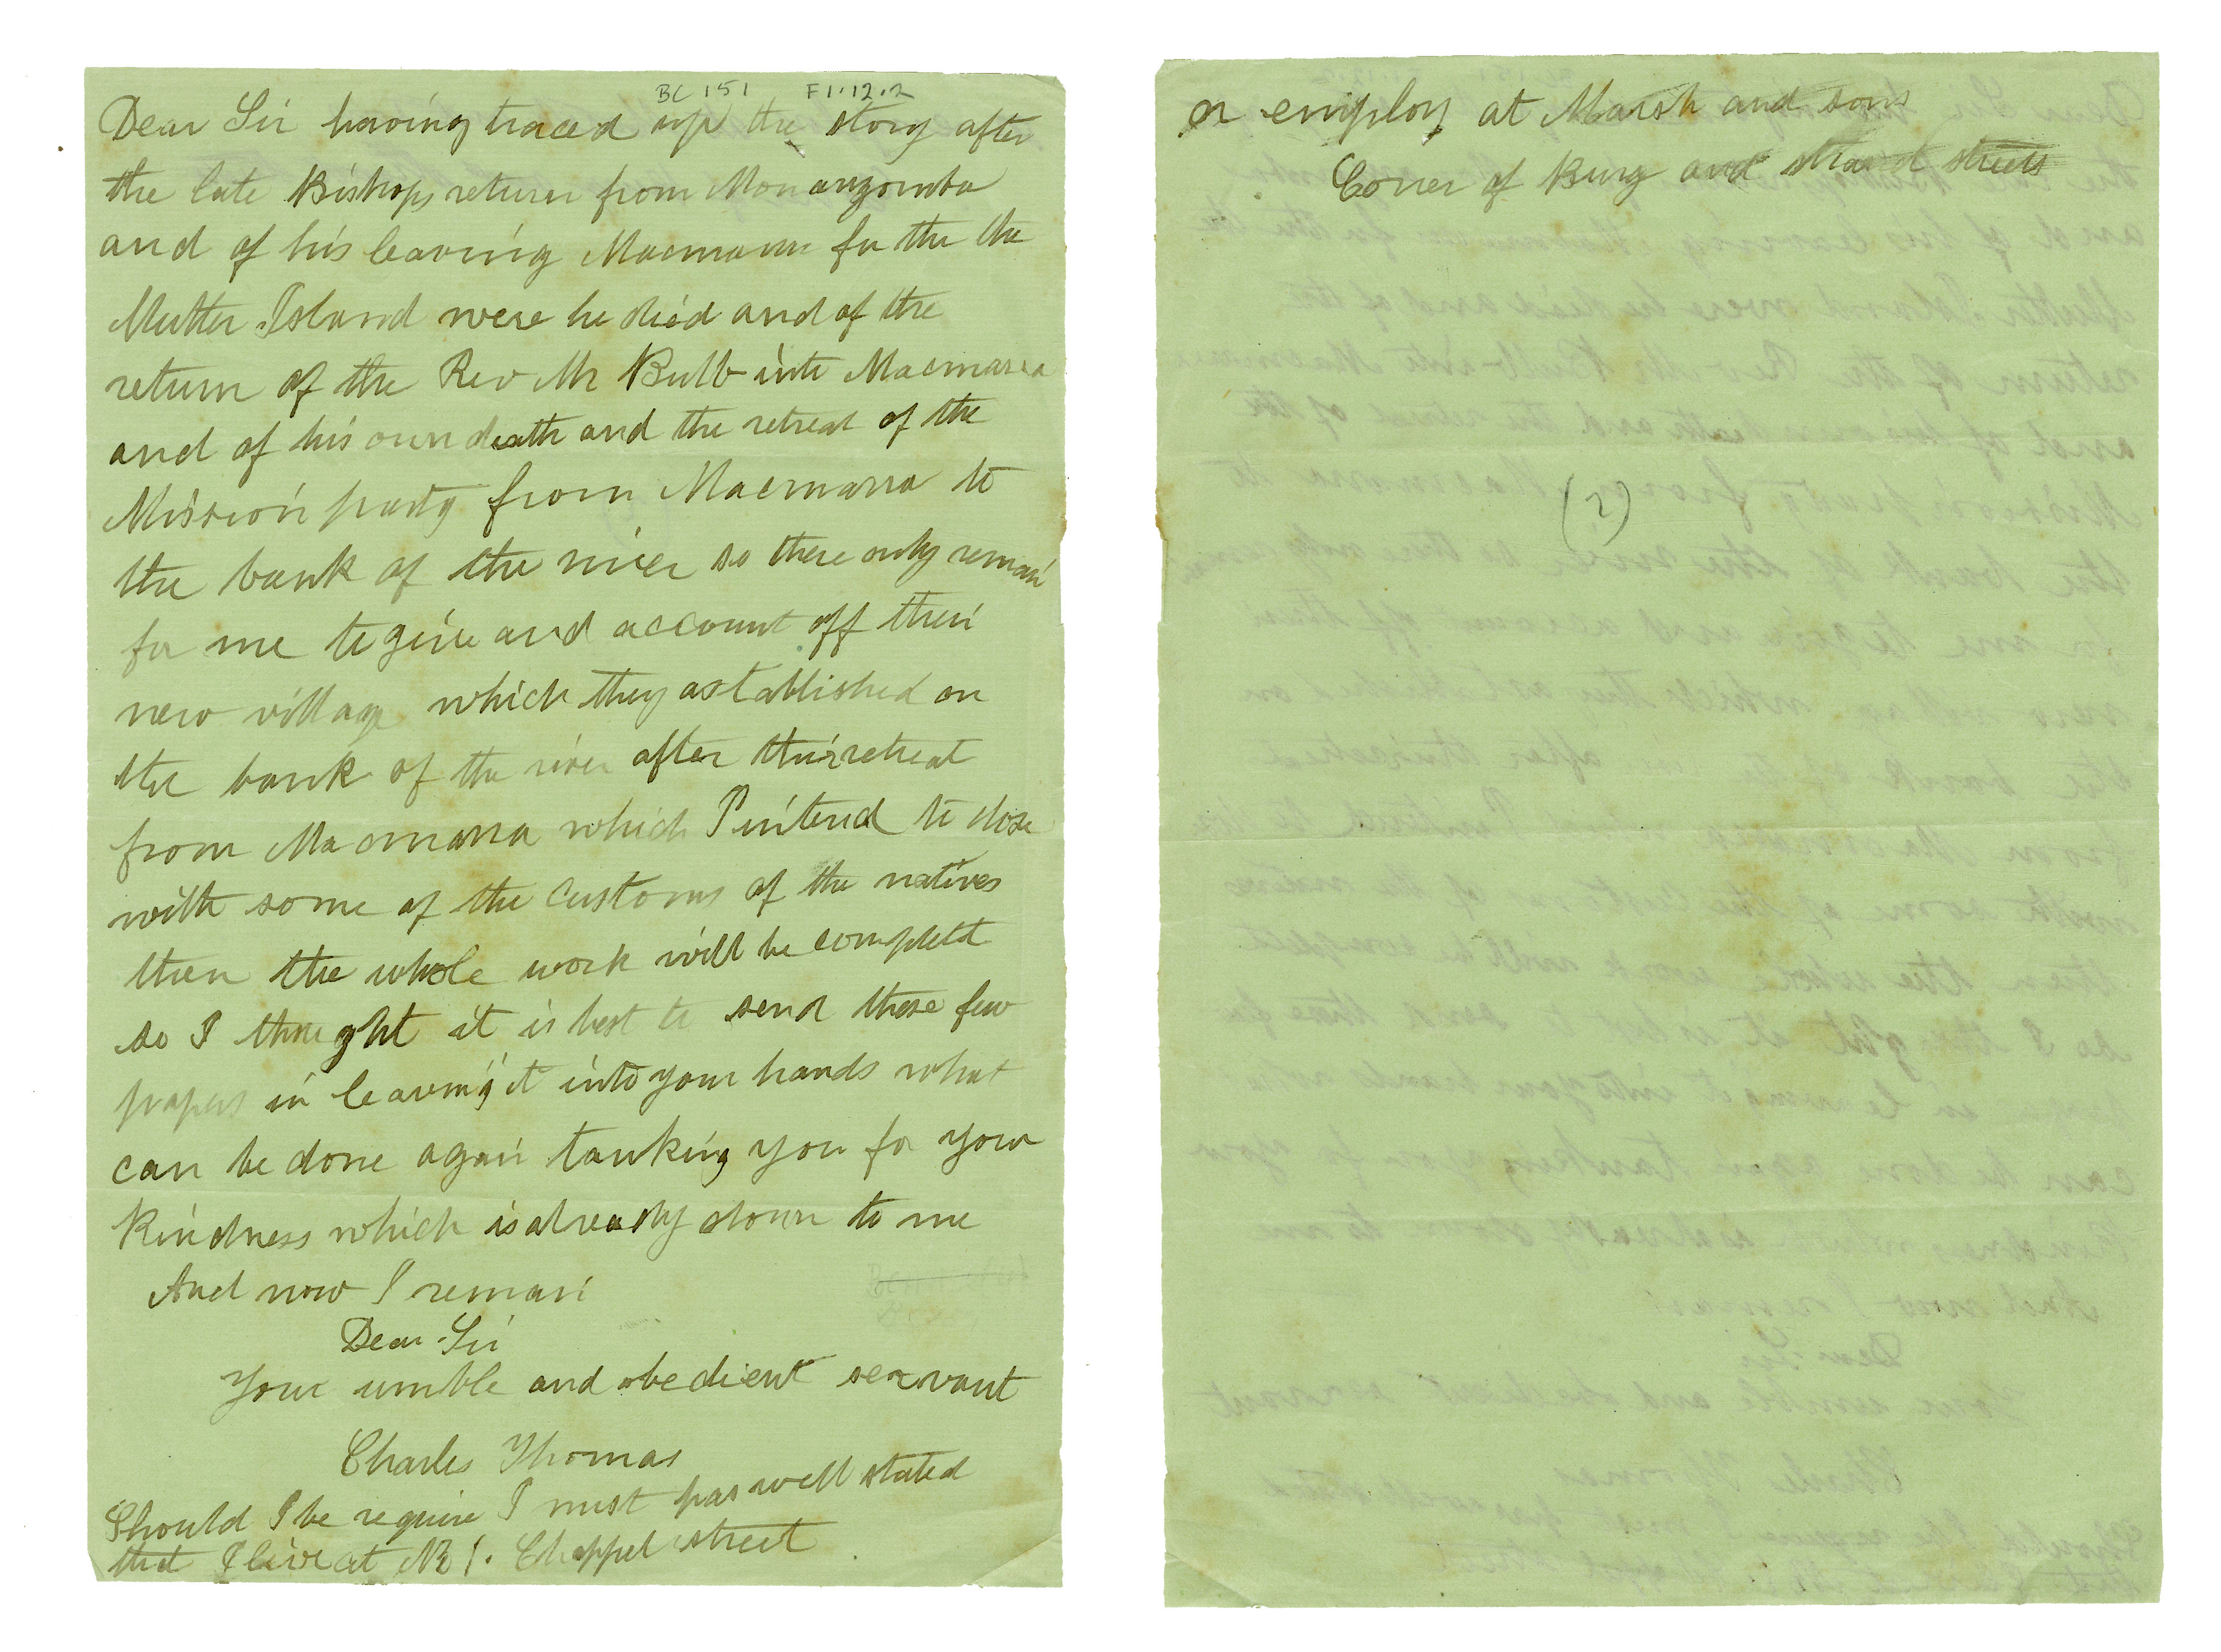 BC 151 F1.12.2
Dear Sir having traced up the story after
the late Bishops return from Monangomba
and of his leaving Macmanna for the the
Mutter Island were he died and of the
return of the Rev Mr Bulb into Macmanna
and of his own death and the retreat of the
Mission party from Macmanna to
the bank of the river so there only remain
for me to give and account off their
new village which they astablished on
the bank of the river after their retreat
from Macmanna which I intend to close
with some of the customs of the natives
then the whole work will be complett
so I thought it is best to send these few
papers in leaving it into your hands what
can be done again tanking you for your
kindness which is already shown to me
And now I remain
Dear Sir
Your umble and obedient servant
Charles Thomas
Should I be require I must has well stated
that I live at No 1. Chappel street
or employ at Marsh and sons
Corner of Burg and strand streets
(2)